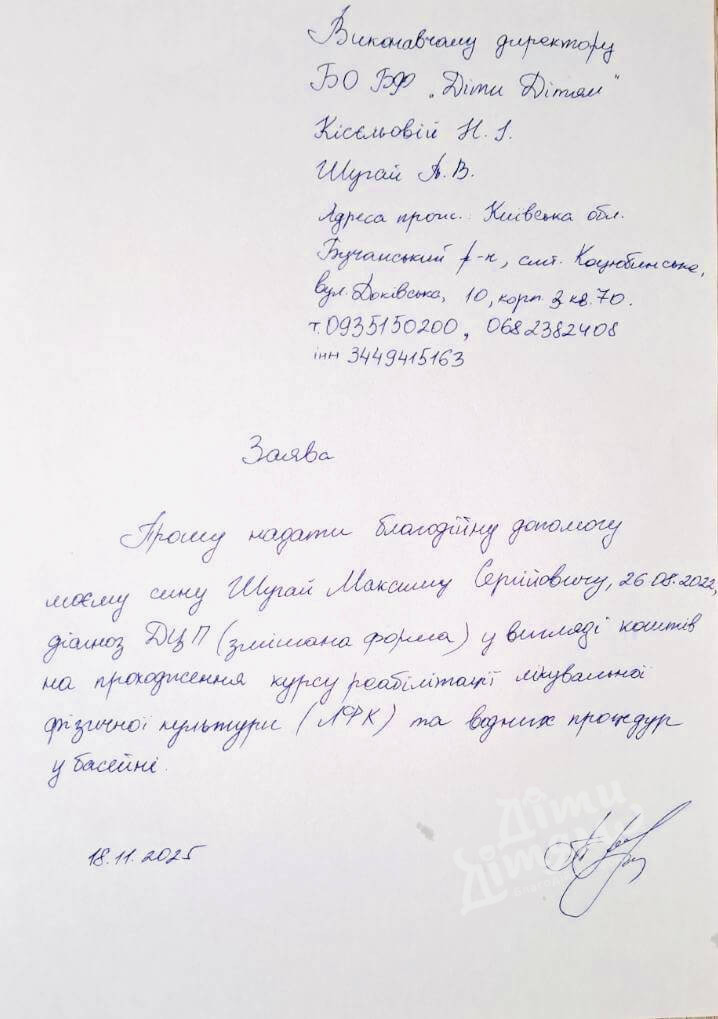 Виконавчому директору
БО БФ „Діти Дітям"
Кісєльовій Н. І.
Шугай А. В.
Адреса прож.: Київська обл.
Бучанський р-н, смт. Коцюбинське,
вул. Доківська, 10, корп. 3 кв. 70.
т. 0935150200, 0682382408
інн 3449415163
Заява
Прошу надати благодійну допомогу
моєму сину Шугай Максиму Сергійовичу, 26.08.2022,
діагноз ДЦП (змішана форма) у вигляді коштів
на проходження курсу реабілітації лікувальної
фізичної культури (ЛФК) та водних процедур
у басейні.
18.11.2025
Діти
Дітям